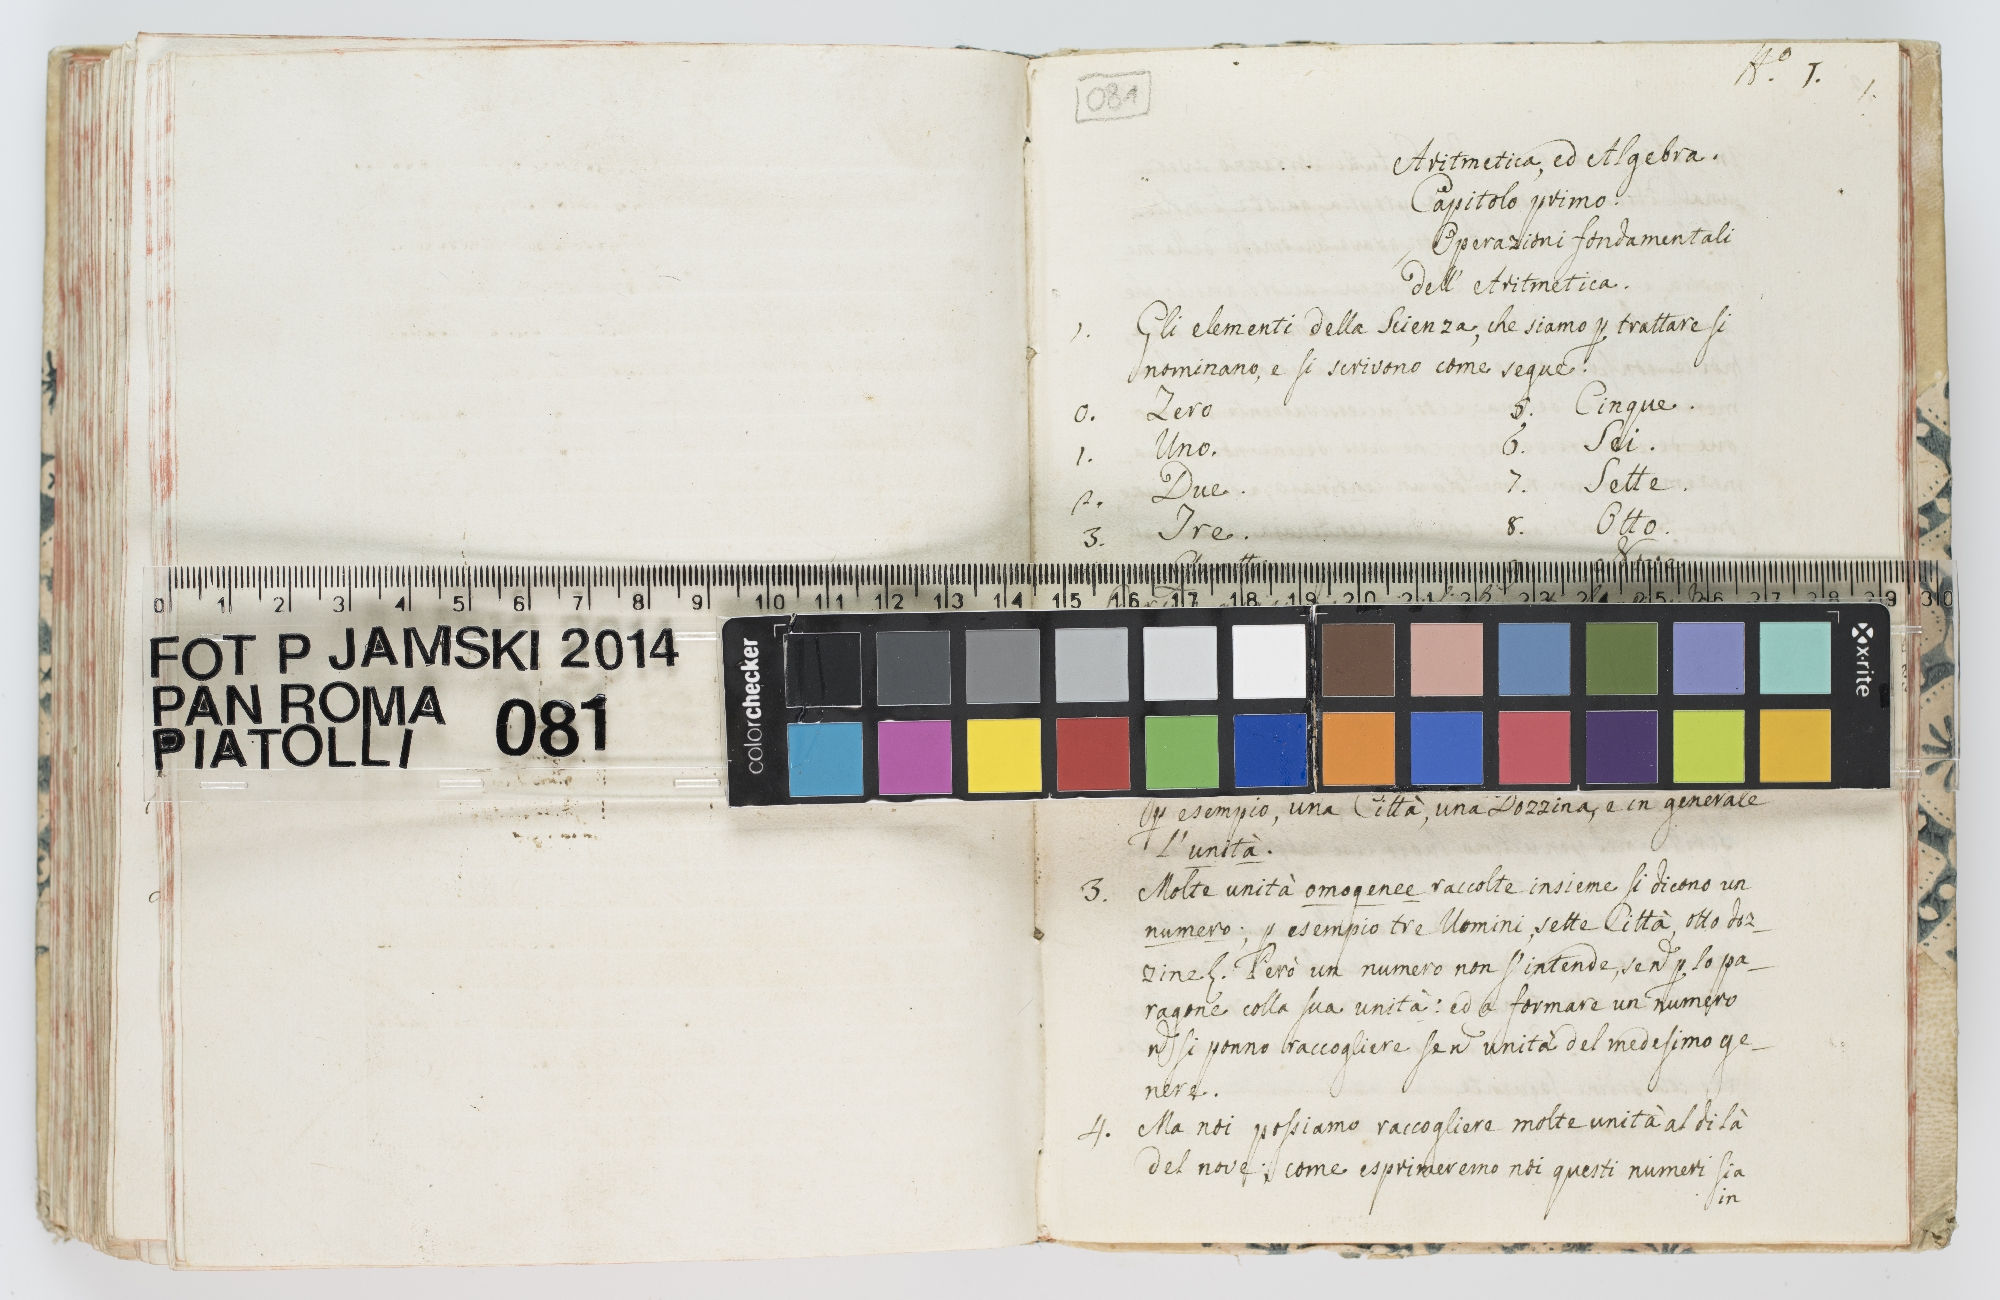 081
N.º 1.
1.
Aritmetica, ed Algebra.
Capitolo primo.
Operazioni fondamentali
dell' Aritmetica.
1. Gli elementi della Scienza, che siamo p trattare si
nominano, e si scrivono come segue.
0. Zero 5. Cinque.
1. Uno. 6. Sei.
2. Due. 7. Sette.
3. Tre. 8. Otto.
0 1 2 3 4 5 6 7 8 9 10 11 12 13 14 15 16 17 18 19 20 21 22 23 24 25 26 27 28 29 30
FOT P JAMSKI 2014
PAN ROMA
PIATOLLI 081
colorchecker
x-rite
p esempio, una Città, una Dozzina, e in generale
l'unità.
3. Molte unità omogenee raccolte insieme si dicono un
numero; p esempio tre Uomini, sette Città, otto doz-
zine. Però un numero non s'intende, se p lo pa-
ragone colla sua unità: ed a formare un numero
si ponno raccogliere se unità del medesimo ge-
nere.
4. Ma noi possiamo raccogliere molte unità al di là
del nove; come esprimeremo noi questi numeri sia
in